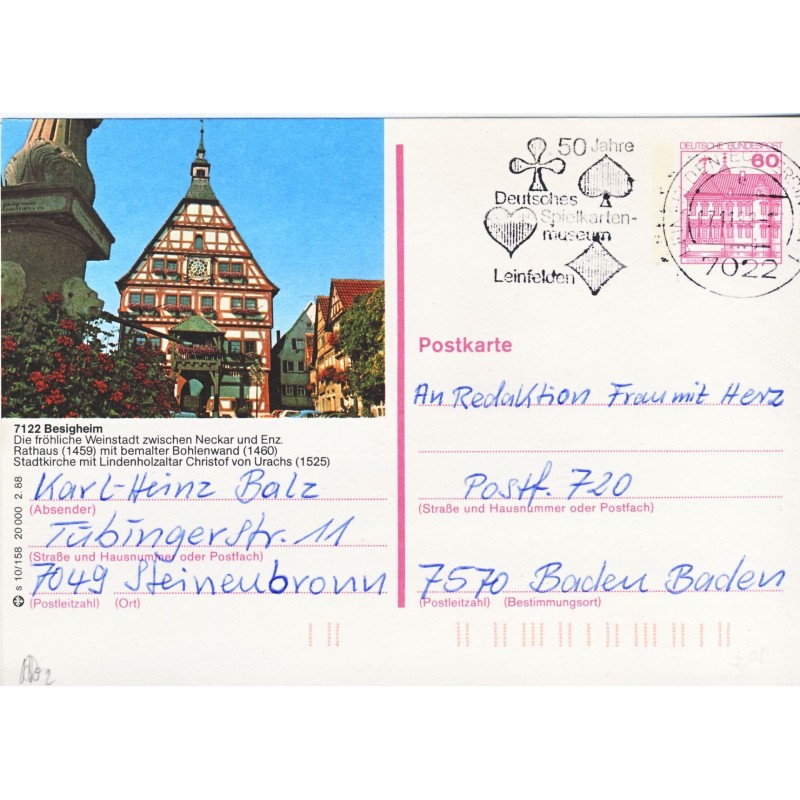 50 Jahre
Deutsches
Spielkarten-
museum
Leinfelden
DEUTSCHE BUNDESPOST
60
7022
Postkarte
An Redaktion Frau mit Herz
Postf. 720
(Straße und Hausnummer oder Postfach)
7570 Baden Baden
(Postleitzahl) (Bestimmungsort)
7122 Besigheim
Die fröhliche Weinstadt zwischen Neckar und Enz.
Rathaus (1459) mit bemalter Bohlenwand (1460)
Stadtkirche mit Lindenholzaltar Christof von Urachs (1525)
Karl-Heinz Balz
(Absender)
Tübingerstr. 11
(Straße und Hausnummer oder Postfach)
7049 Steinenbronn
(Postleitzahl) (Ort)
s 10/158 20 000 2. 88